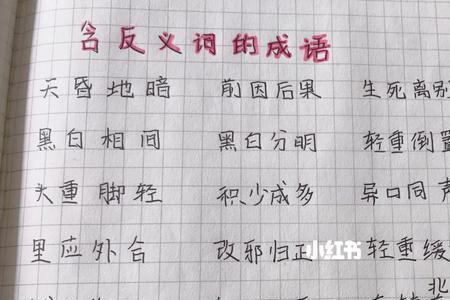 含反义词的成语
天昏地暗 前因后果 生死离别
黑白相间 黑白分明 轻重倒置
头重脚轻 积少成多 异口同声
里应外合 改邪归正 轻重缓
小红书
北